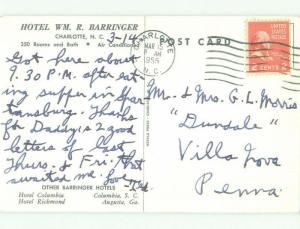 HOTEL WM. R. BARRINGER
CHARLOTTE, N. C. 3-14
250 Rooms and Bath • Air Conditioned
POST CARD
CHARLOTTE
MAR 15
AM
1955
N.C.
2 CENTS 2
Got here about
7.30 P.M. after eat
ing supper in Spar
tansburg. Thanks
for Daddy's 2 good
letters of last
Thurs. & Fri. that
awaited me. Love
Mr. & Mrs. G. L. Morris
"Dunsdale"
Villa Nova
Penna
OTHER BARRINGER HOTELS
Hotel Columbia Columbia, S. C.
Hotel Richmond Augusta, Ga.